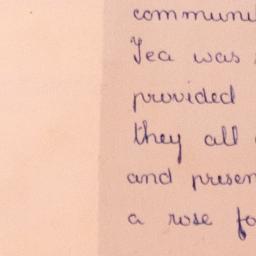 communi
Tea was
provided
they all
and presen
a rose fo